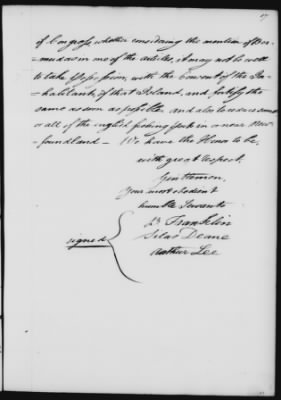 of Congress, whether considering the mention of Ber-
mudas in one of the articles, it may not be well
to take possession, with the Consent of the In-
habitants, of that Island, and fortify the
same as soon as possible, and also to reduce some
or all of the english fishing posts in or near New-
foundland — We have the Honor to be,
with great respect,
Gentlemen,
Your most obedient
humble Servants
B Franklin
signed Silas Deane
Arthur Lee